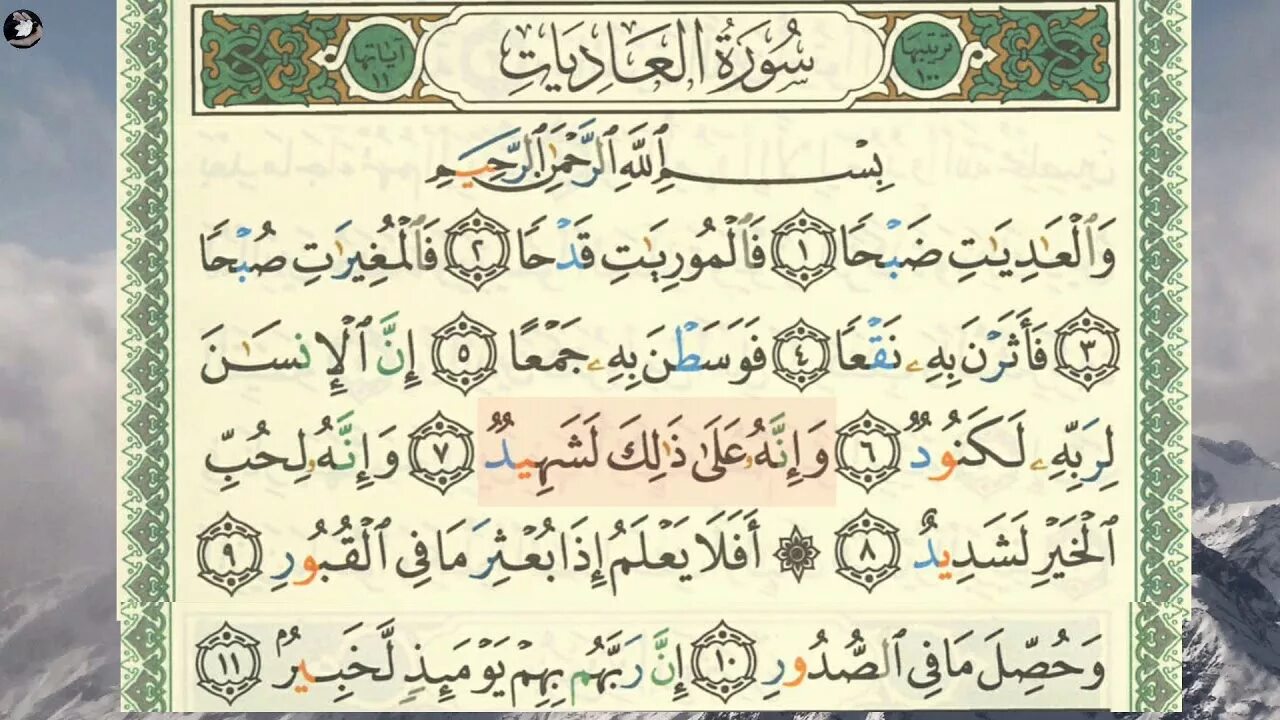 ترتيبها ١٠٠ سُورَةُ الْعَادِيَاتِ آيَاتُهَا ١١
بِسْمِ ٱللَّهِ ٱلرَّحْمَٰنِ ٱلرَّحِيمِ
وَٱلْعَٰدِيَٰتِ ضَبْحًا ١ فَٱلْمُورِيَٰتِ قَدْحًا ٢ فَٱلْمُغِيرَٰتِ صُبْحًا
٣ فَأَثَرْنَ بِهِۦ نَقْعًا ٤ فَوَسَطْنَ بِهِۦ جَمْعًا ٥ إِنَّ ٱلْإِنسَٰنَ
لِرَبِّهِۦ لَكَنُودٌ ٦ وَإِنَّهُۥ عَلَىٰ ذَٰلِكَ لَشَهِيدٌ ٧ وَإِنَّهُۥ لِحُبِّ
ٱلْخَيْرِ لَشَدِيدٌ ٨ ۞ أَفَلَا يَعْلَمُ إِذَا بُعْثِرَ مَا فِى ٱلْقُبُورِ ٩
وَحُصِّلَ مَا فِى ٱلصُّدُورِ ١٠ إِنَّ رَبَّهُم بِهِمْ يَوْمَئِذٍ لَّخَبِيرٌۢ ١١